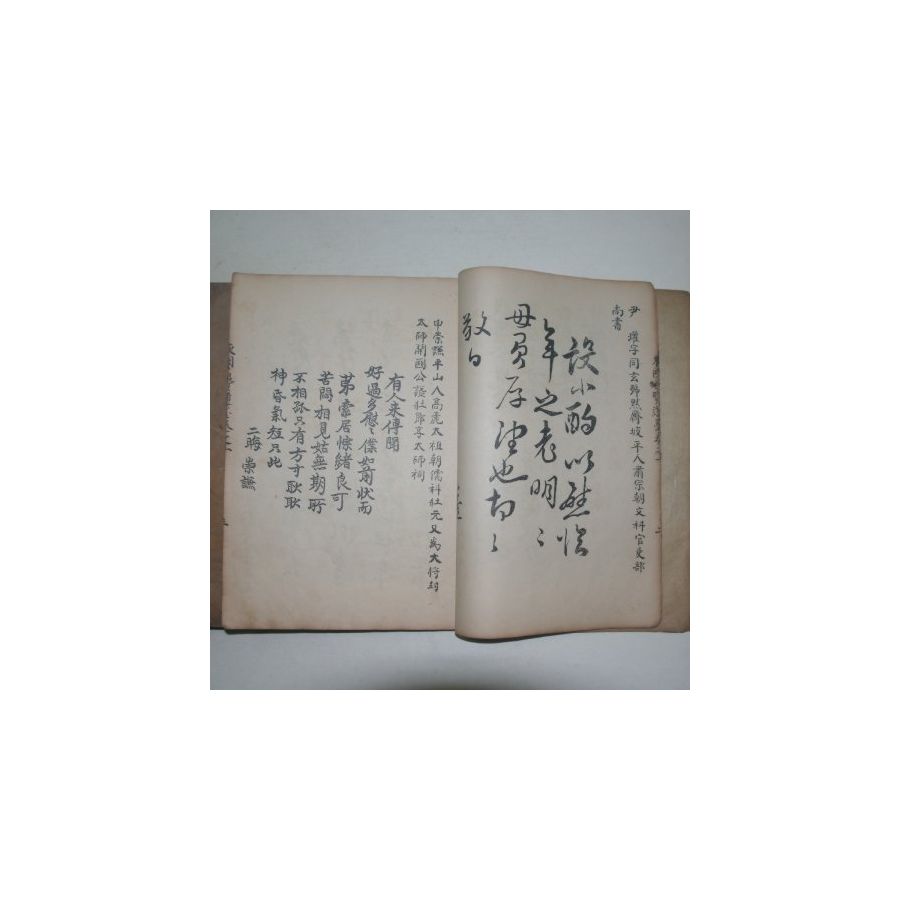 尹 瓘字同玄號然齋坡平人肅宗朝文科官吏部
尚書
設小酌以慰
年之老明〻
毋負厚望也
敬日
申崇謙平山人高麗太祖朝儒科壯元又為大將封
太師開國公諡壯節享太師祠
有人来傳聞
好過多慰〻僕如前狀而
苐索居懐緒良可
苦悶相見姑無期所
不相孤只有方寸耿耿
神昏氣短只此
二晦 崇謙